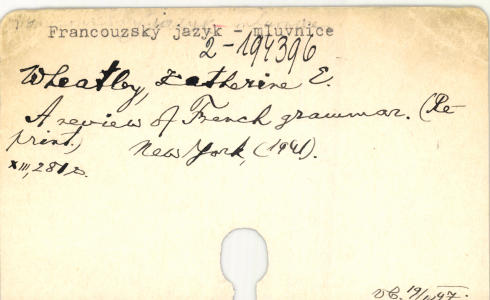 Francouzský jazyk - mluvnice
2-194396
Wheatley, Katherine E.
A review of French grammar. (Re-
print.) New York, (1941).
XIII, 281 p.